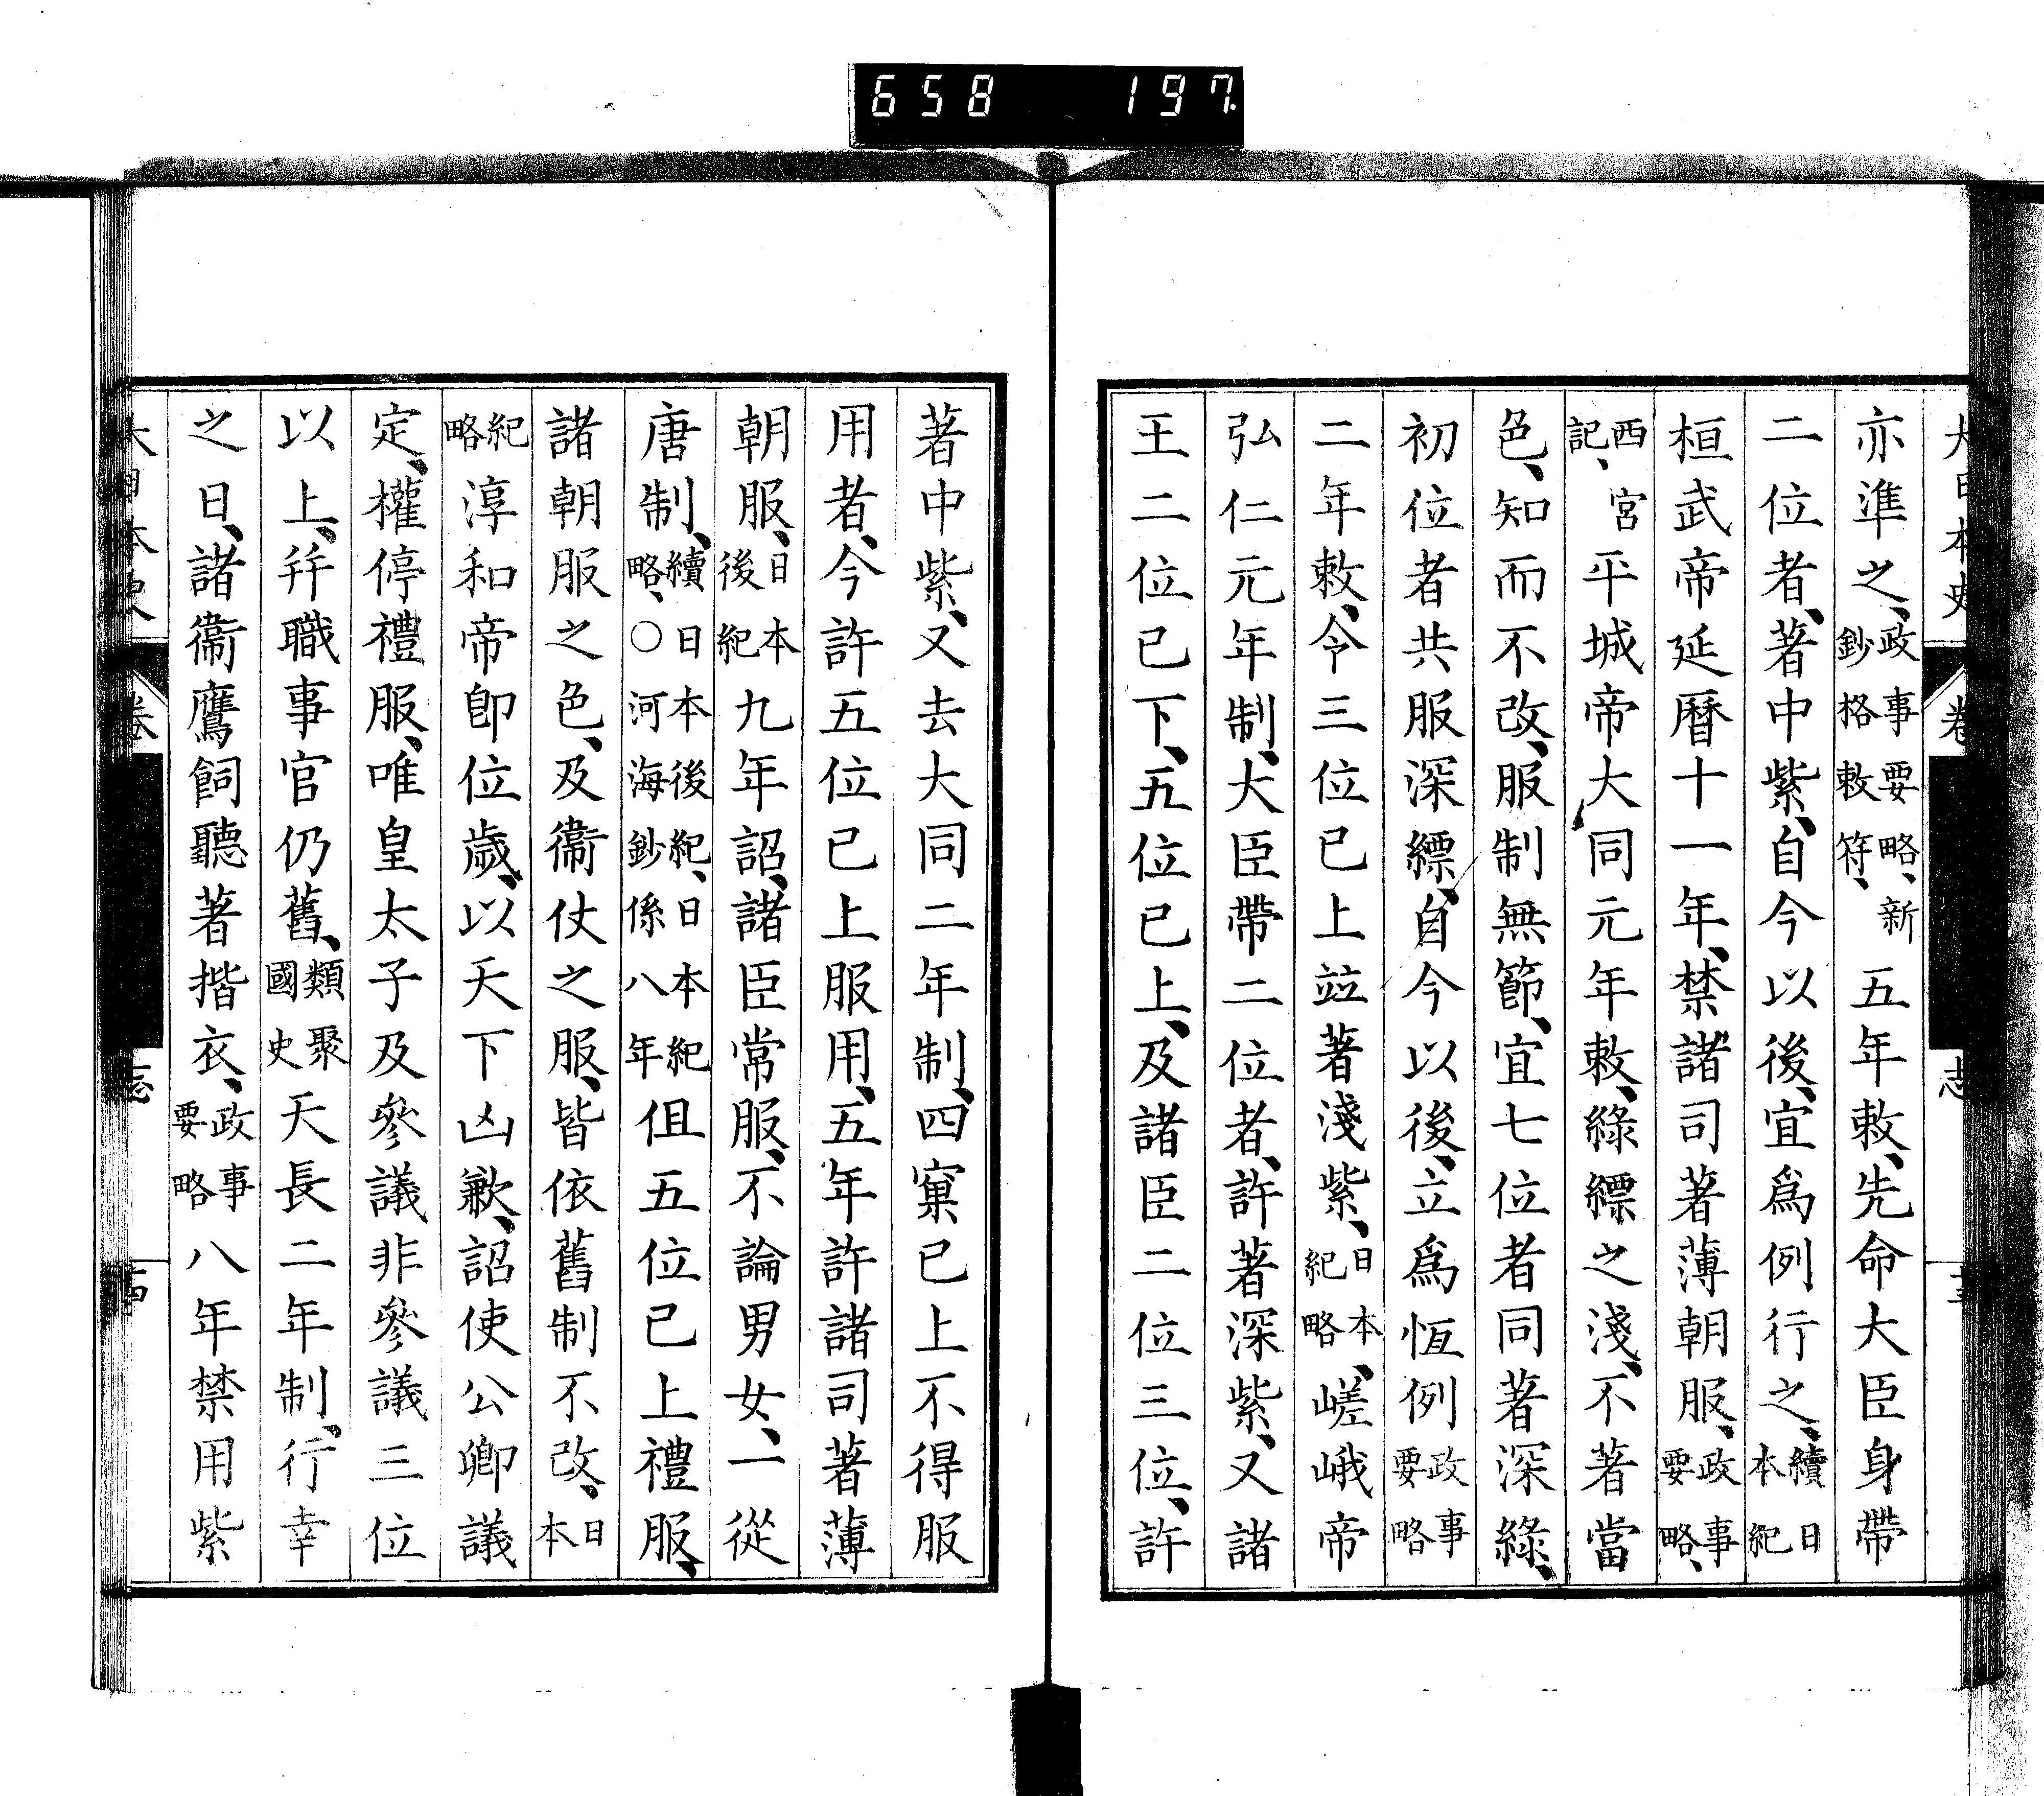 658 197
大日本史 卷 志
亦準之、政事要略、新鈔格敕符、五年敕、先命大臣身帶
二位者、著中紫、自今以後、宜爲例行之、續日本紀
桓武帝延曆十一年、禁諸司著薄朝服、政事要略、
西宮記、平城帝大同元年敕、綠縹之淺、不著當
色、知而不改、服制無節、宜七位者同著深綠、
初位者共服深縹、自今以後、立爲恆例政事要略
二年敕、令三位已上竝著淺紫、日本紀略、嵯峨帝
弘仁元年制、大臣帶二位者、許著深紫、又諸
王二位已下、五位已上、及諸臣二位三位、許
著中紫、又去大同二年制、四窠已上不得服
用者、今許五位已上服用、五年許諸司著薄
朝服、日本後紀九年詔、諸臣常服、不論男女、一從
唐制、續日本後紀、日本紀略、○河海鈔係八年但五位已上禮服、
諸朝服之色、及衞仗之服、皆依舊制不改、日本
紀略淳和帝卽位歲、以天下凶歉、詔使公卿議
定、權停禮服、唯皇太子及參議非參議三位
以上、幷職事官仍舊、類聚國史天長二年制、行幸
之日、諸衞鷹飼聽著揩衣、政事要略八年禁用紫
大日本史 卷 志